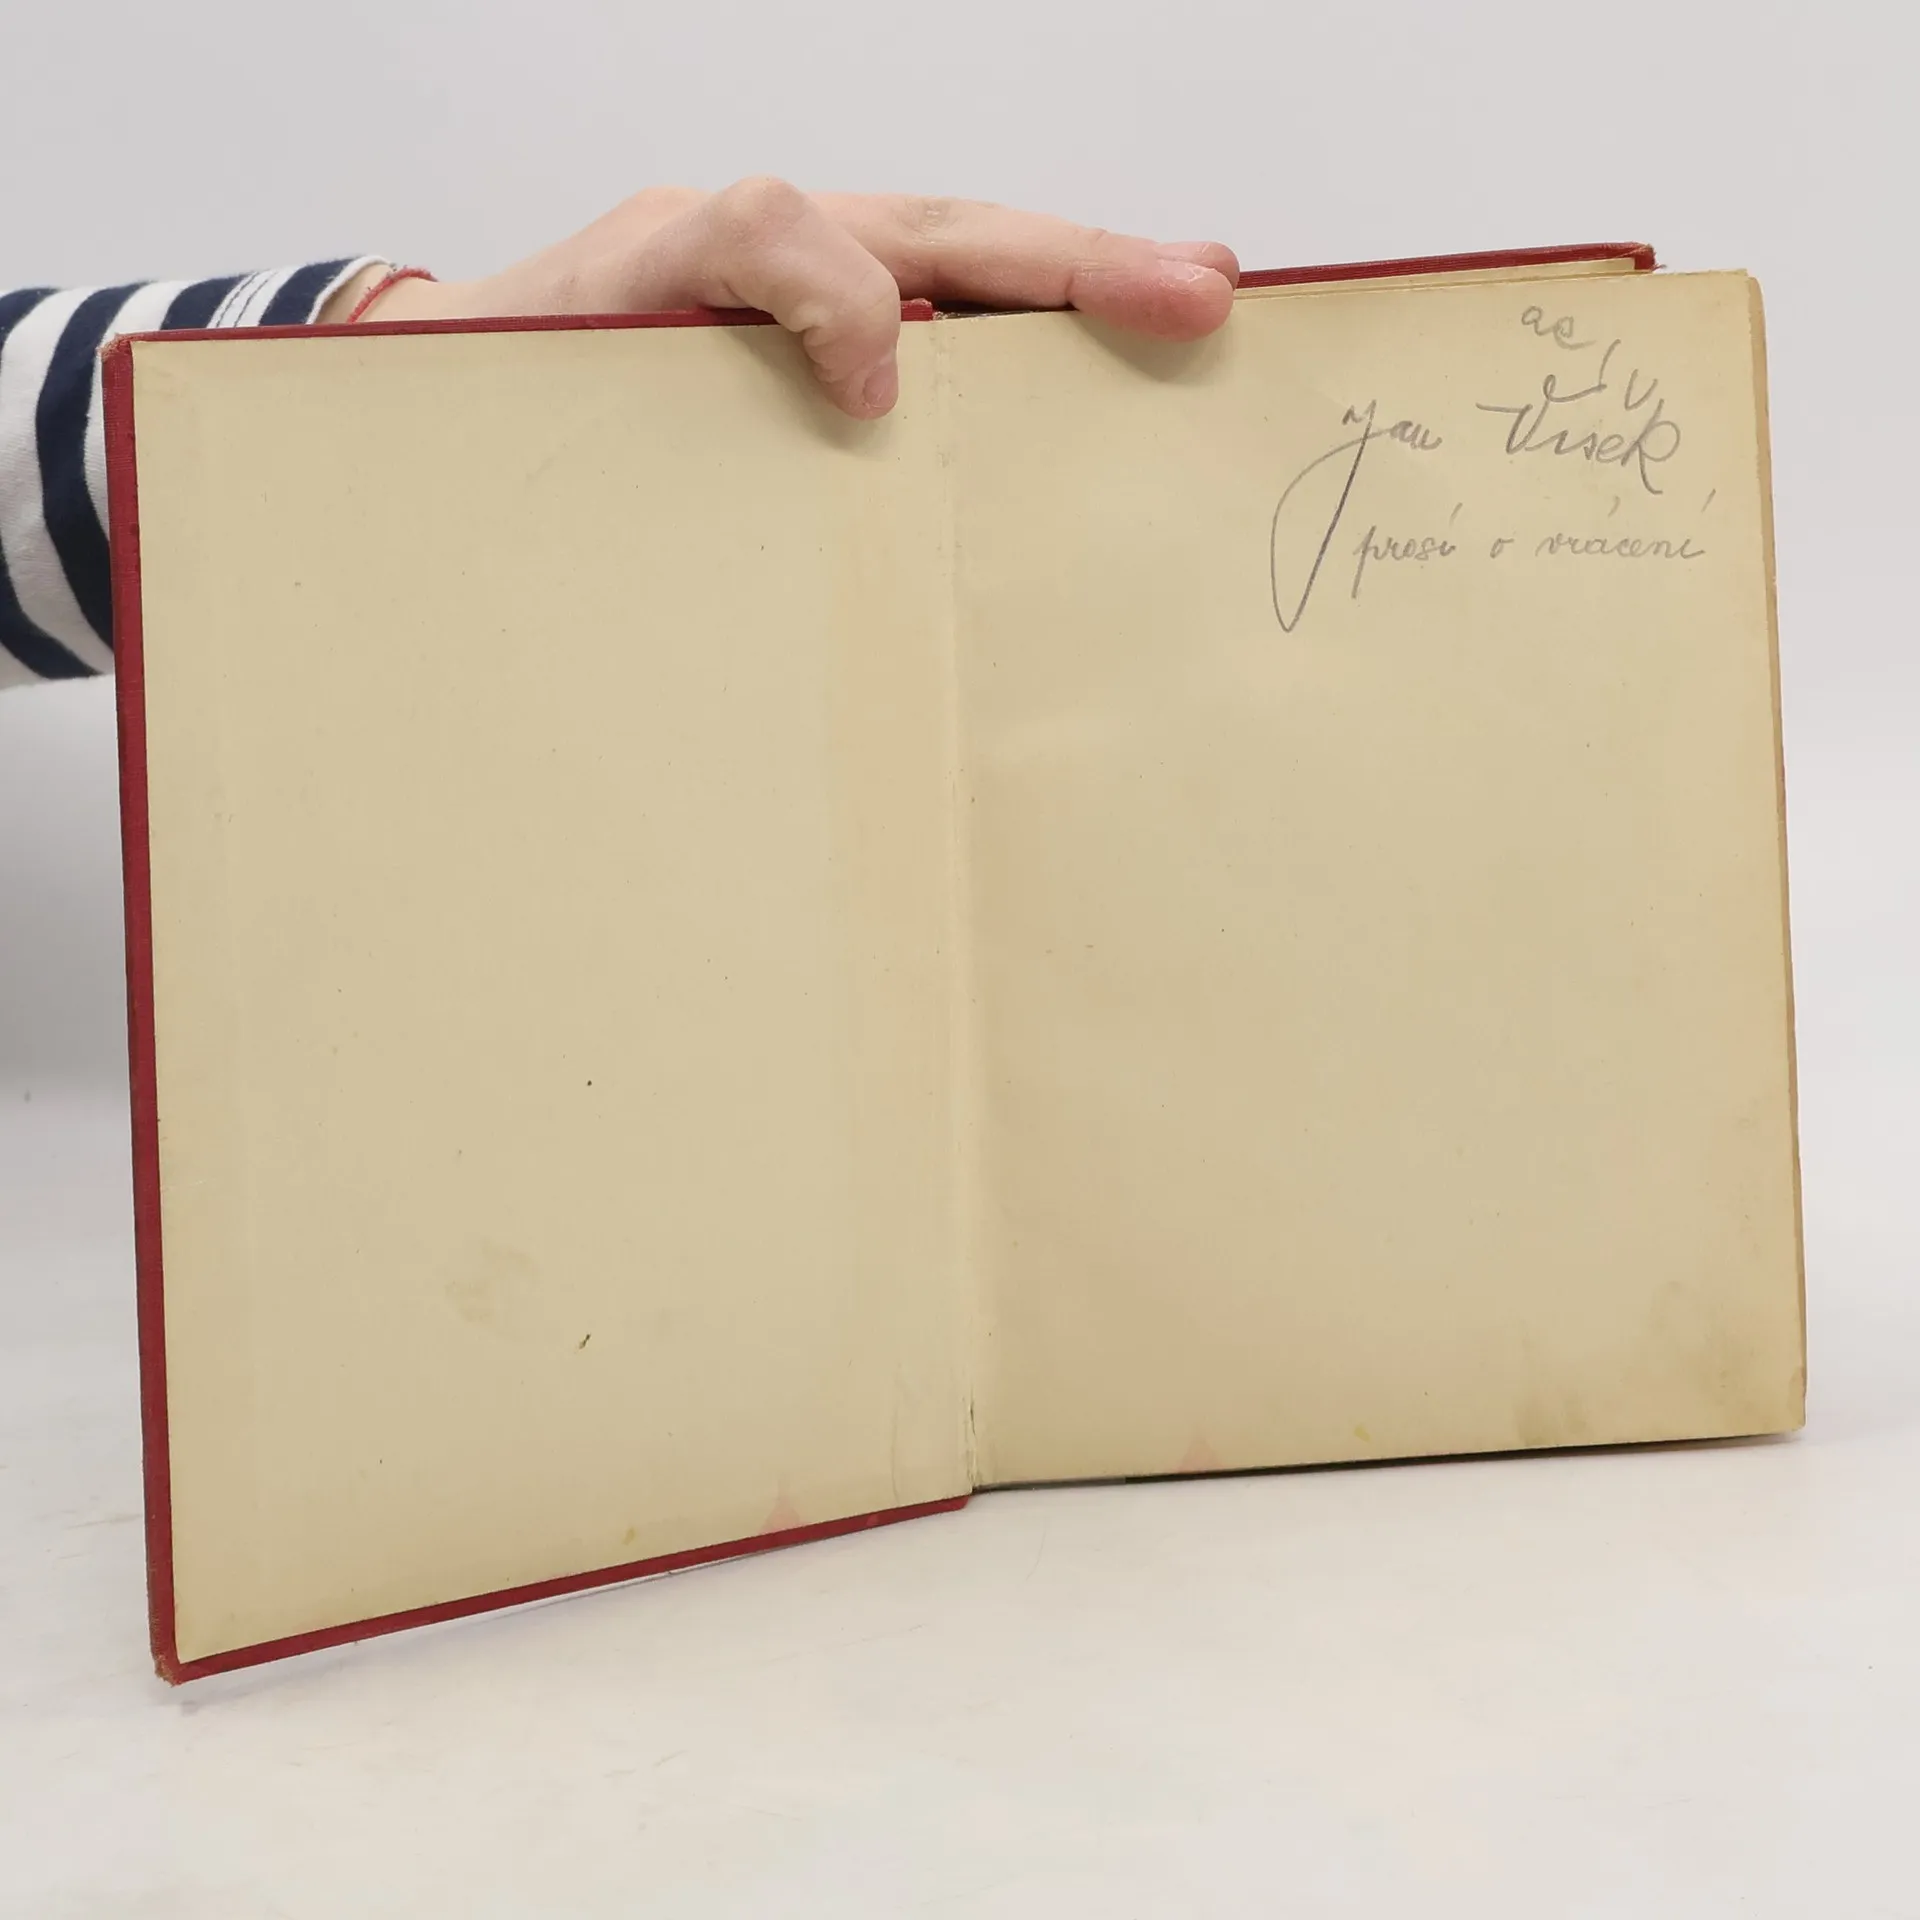 Jan Víšek
prosí o vrácení